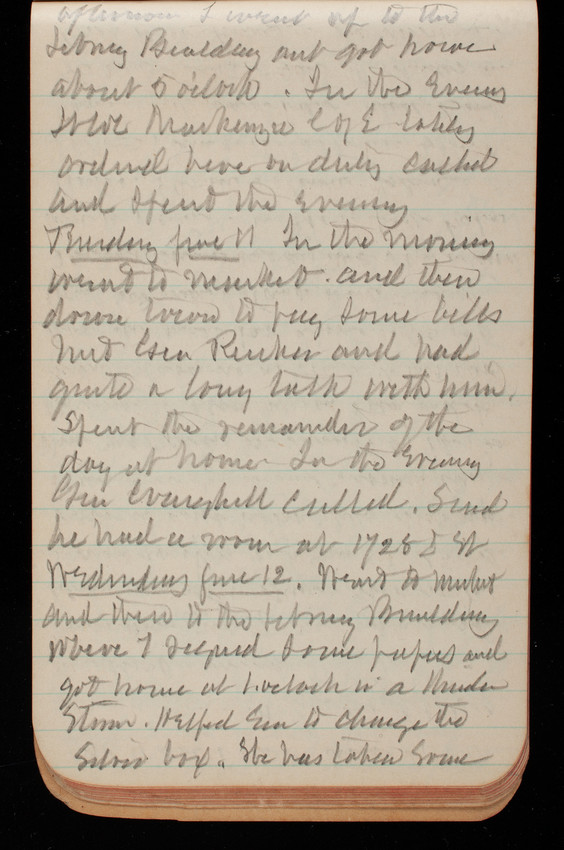 afternoon I went up to the
Library Building and got home
about 5 oclock. In the Evening
Mackenzie C of E lately
ordered here on duty called
and spent the evening
Tuesday June 11 In the morning
went to market and then
down town to pay some bills
met Gen Rucker and had
quite a long talk with him.
Spent the remainder of the
day at home In the Evening
Gen Craighill called. Said
he had a room at 1728 I St
Wednesday June 12. Went to market
and then to the Library Building
where I signed some papers and
got home at 1 oclock in a thunder
Storm. Helped to change the
box. She has taken some